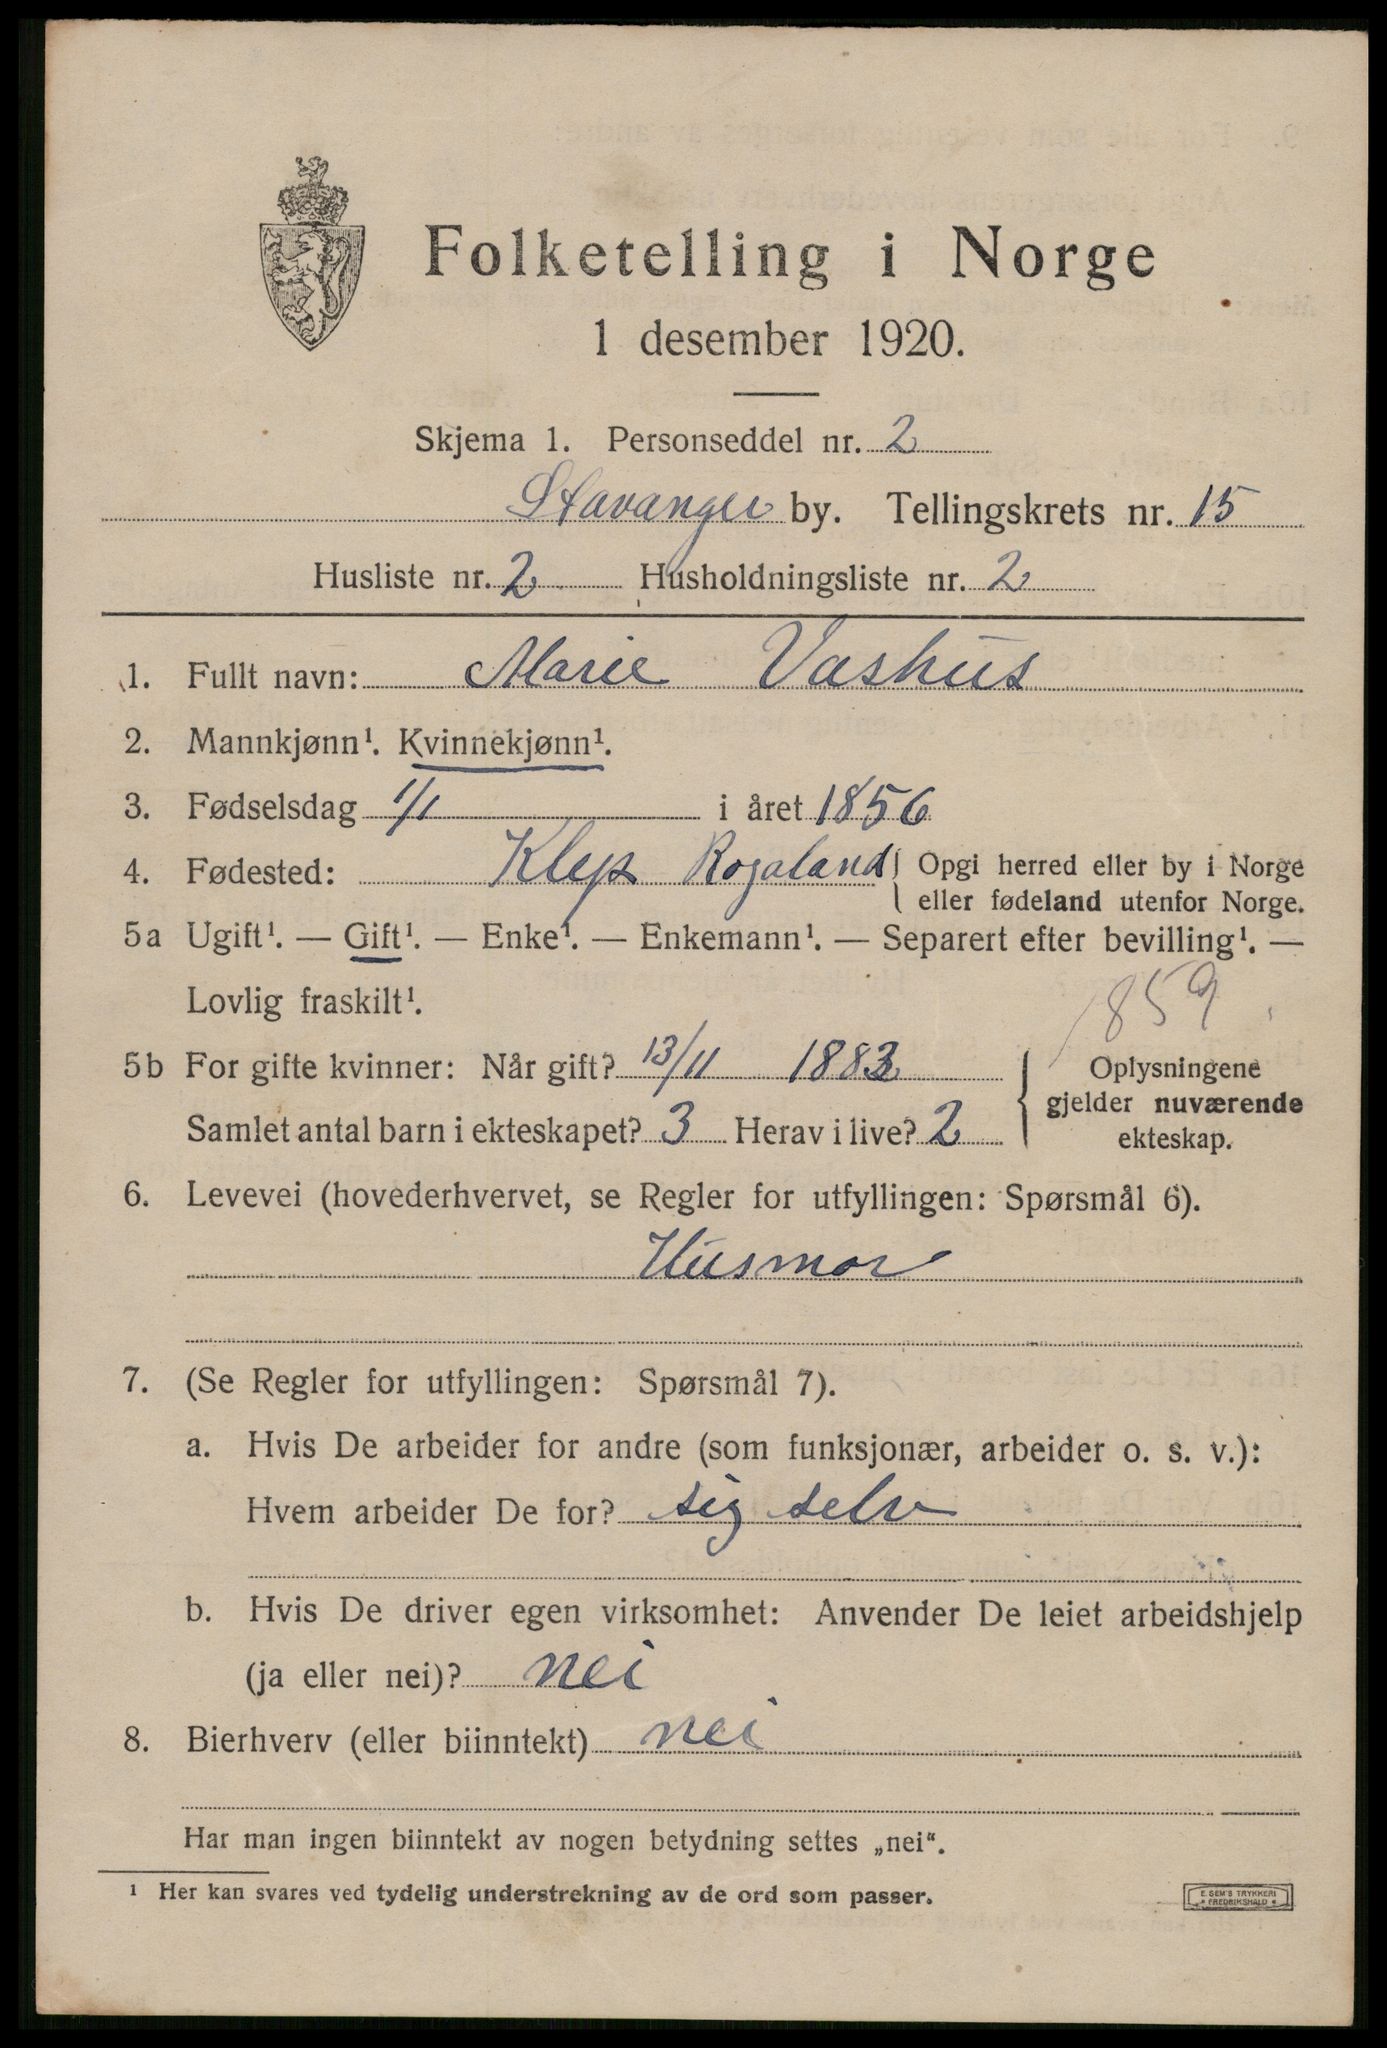 Folketelling i Norge
1 desember 1920.
Skjema 1. Personseddel nr. 2
Stavanger by. Tellingskrets nr. 15
Husliste nr. 2 Husholdningsliste nr. 2
1. Fullt navn: Marie Vashus
2. Mannkjønn¹. Kvinnekjønn¹.
3. Fødselsdag 1/1 i året 1856
4. Fødested: Klep Rogaland { Opgi herred eller by i Norge
eller fødeland utenfor Norge.
5a Ugift¹. — Gift¹. — Enke¹. — Enkemann¹. — Separert efter bevilling¹. —
Lovlig fraskilt¹.
1859
5b For gifte kvinner: Når gift? 13/11 1883
Samlet antal barn i ekteskapet? 3 Herav i live? 2
{ Oplysningene
gjelder nuværende
ekteskap.
6. Levevei (hovederhvervet, se Regler for utfyllingen: Spørsmål 6).
Husmor
7. (Se Regler for utfyllingen: Spørsmål 7).
a. Hvis De arbeider for andre (som funksjonær, arbeider o. s. v.):
Hvem arbeider De for? sig selv
b. Hvis De driver egen virksomhet: Anvender De leiet arbeidshjelp
(ja eller nei)? nei
8. Bierhverv (eller biinntekt) nei
Har man ingen biinntekt av nogen betydning settes „nei“.
¹ Her kan svares ved tydelig understrekning av de ord som passer.
E. SEM'S TRYKKERI
FREDRIKSHALD